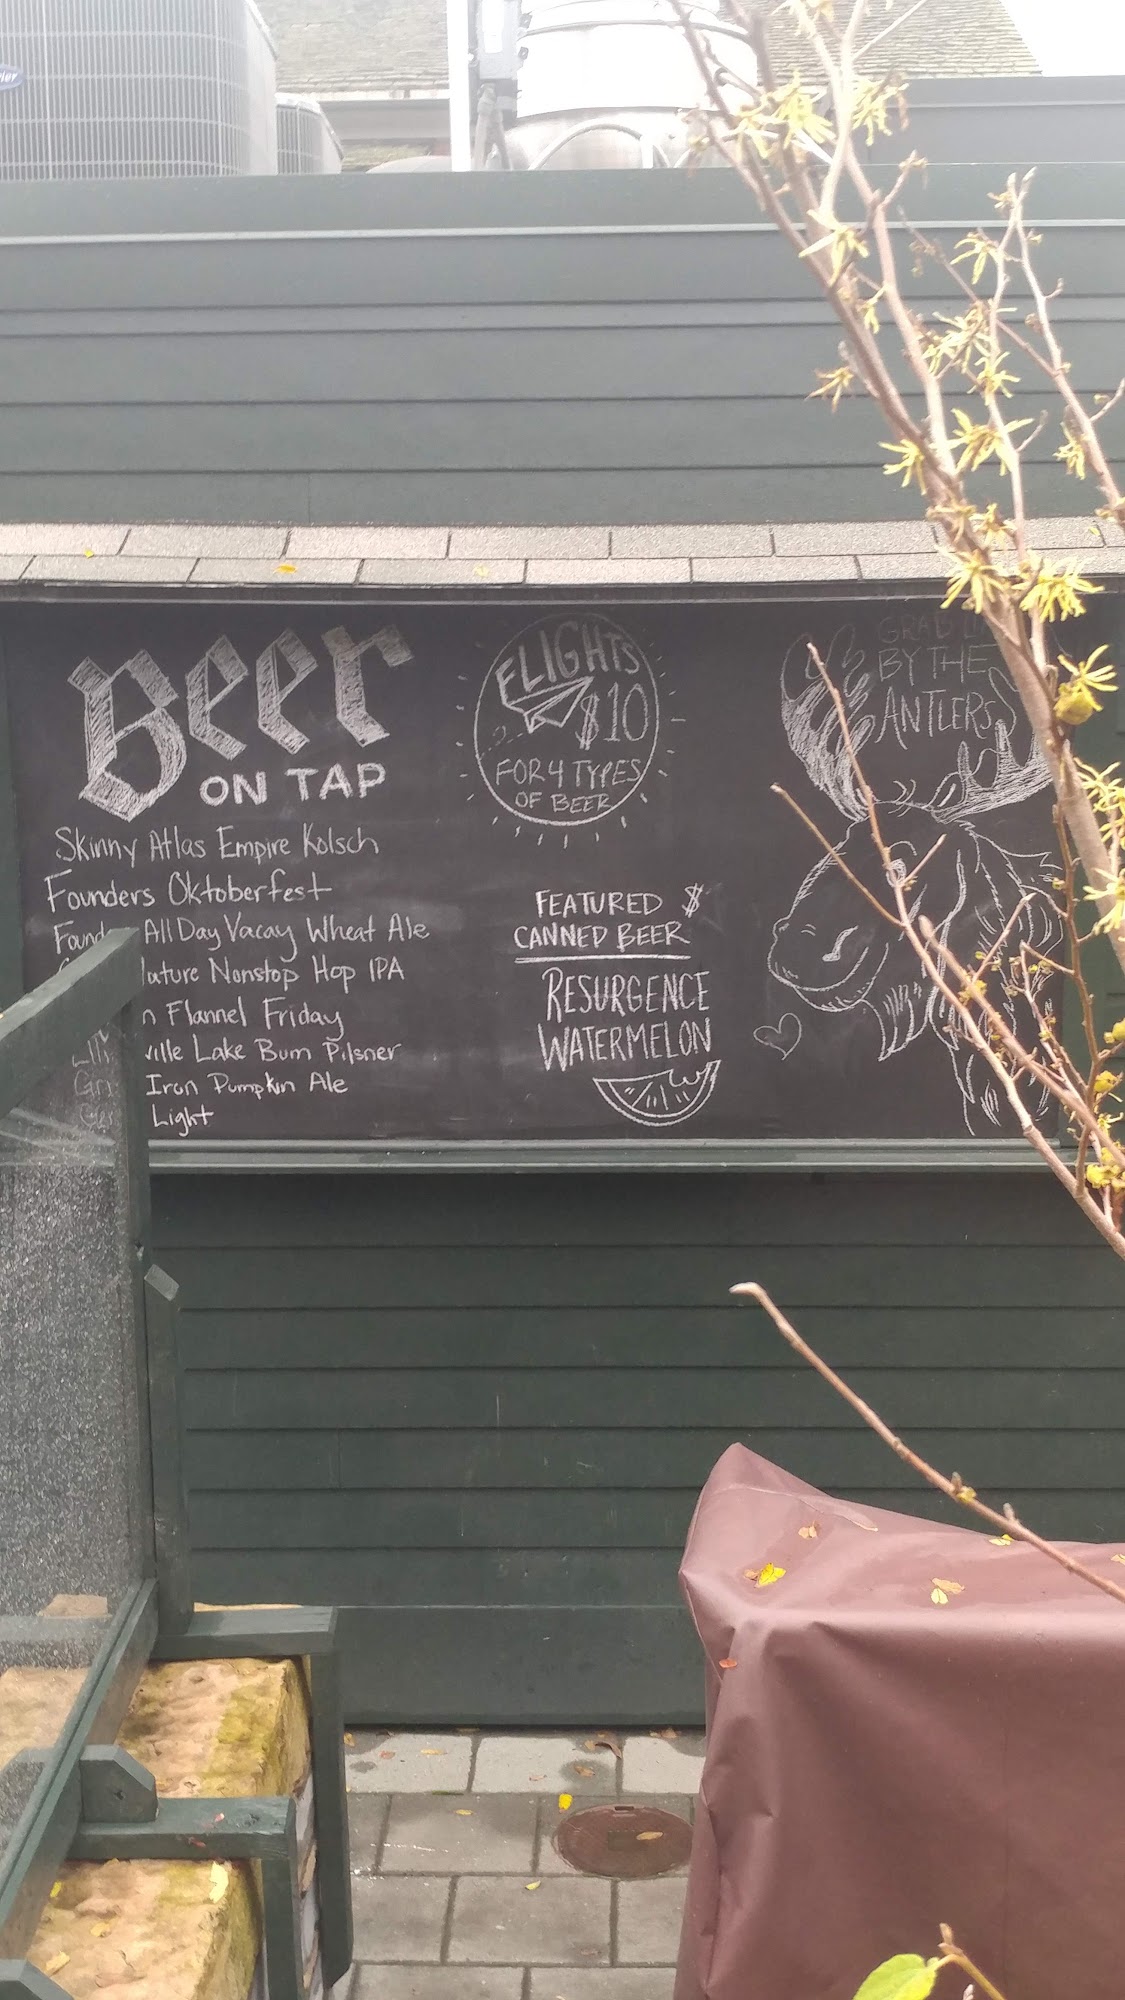 Beer
ON TAP
Skinny Atlas Empire Kolsch
Founders Oktoberfest
All Day Vacay Wheat Ale
Nonstop Hop IPA
Flannel Friday
Lake Bum Pilsner
Iron Pumpkin Ale
Light
FLIGHTS
$10
FOR 4 TYPES
OF BEER
FEATURED $
CANNED BEER
RESURGENCE
WATERMELON
GRAB
BY THE
ANTLERS